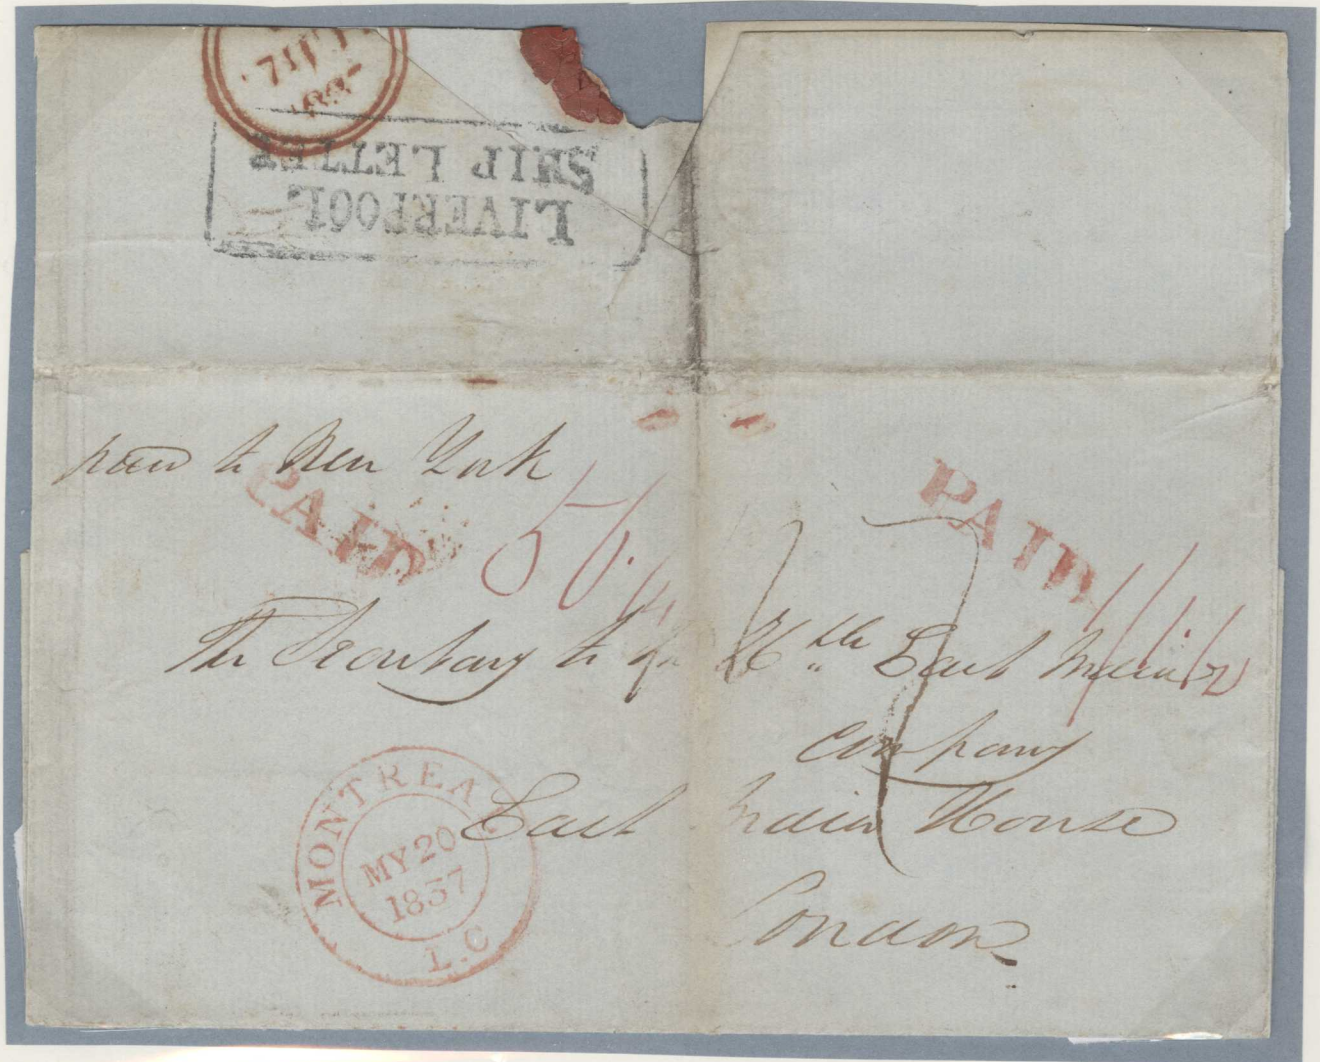 LIVERPOOL
SHIP LETTER
paid to New York
PAID
PAID
The Secretary to the Hble East India
Company
East India House
London
MONTREAL
MY 20
1837
L.C